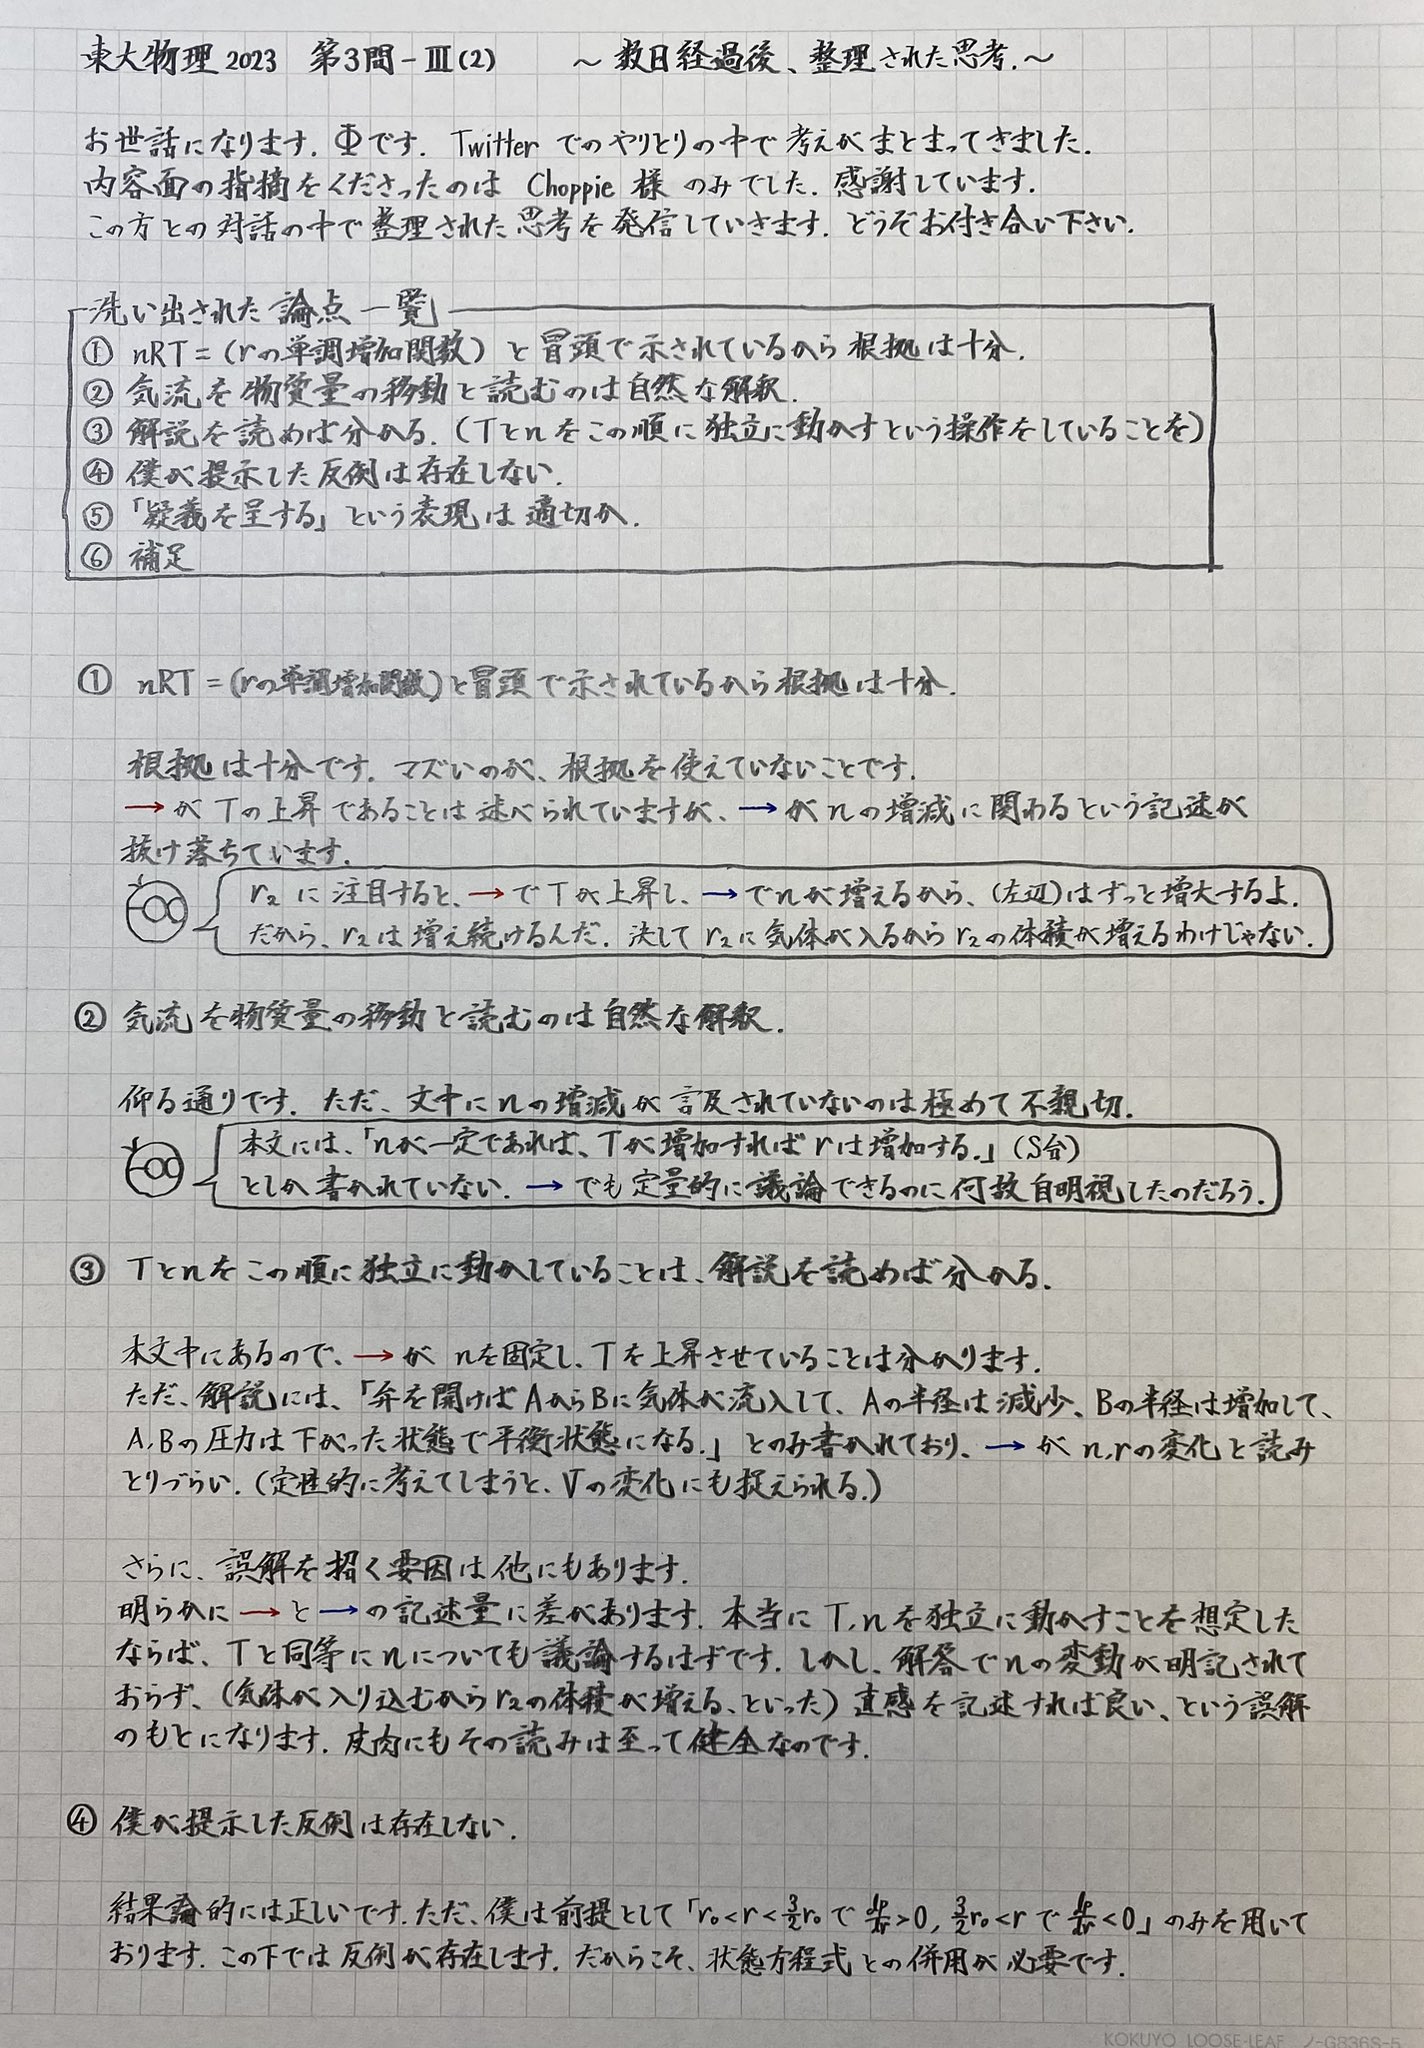 東大物理2023 第3問-Ⅲ(2) ～数日経過後、整理された思考.～
お世話になります. Φです. Twitterでのやりとりの中で考えがまとまってきました.
内容面の指摘をくださったのは Choppie 様 のみでした. 感謝しています.
この方との対話の中で整理された思考を発信していきます. どうぞお付き合い下さい.
洗い出された論点一覧
① nRT=(rの単調増加関数) と冒頭で示されているから根拠は十分.
② 気流を物質量の移動と読むのは自然な解釈.
③ 解説を読めば分かる. (Tとnをこの順に独立に動かすという操作をしていることを)
④ 僕が提示した反例は存在しない.
⑤ 「疑義を呈する」という表現は適切か.
⑥ 補足
① nRT=(rの単調増加関数)と冒頭で示されているから根拠は十分.
根拠は十分です. マズいのが、根拠を使えていないことです.
→がTの上昇であることは述べられていますが、→がnの増減に関わるという記述が
抜け落ちています.
r₂に注目すると、→でTが上昇し、→でnが増えるから、(左辺)はずっと増大するよ.
だから、r₂は増え続けるんだ. 決してr₂に気体が入るからr₂の体積が増えるわけじゃない.
② 気流を物質量の移動と読むのは自然な解釈.
仰る通りです. ただ、文中にnの増減が言及されていないのは極めて不親切.
本文には、「nが一定であれば、Tが増加すればrは増加する.」(S台)
としか書かれていない. →でも定量的に議論できるのに何故自明視したのだろう.
③ Tとnをこの順に独立に動かしていることは、解説を読めば分かる.
本文中にあるので、→が nを固定し、Tを上昇させていることは分かります.
ただ、解説には、「弁を開けばAからBに気体が流入して、Aの半径は減少、Bの半径は増加して、
A,Bの圧力は下がった状態で平衡状態になる.」とのみ書かれており、→がn,rの変化と読み
とりづらい. (定性的に考えてしまうと、Vの変化にも捉えられる.)
さらに、誤解を招く要因は他にもあります.
明らかに→と→の記述量に差があります. 本当にT,nを独立に動かすことを想定した
ならば、Tと同等にnについても議論するはずです. しかし、解答でnの変動が明記されて
おらず、(気体が入り込むからr₂の体積が増える、といった)直感を記述すれば良い、という誤解
のもとになります. 皮肉にもその読みは至って健全なのです.
④ 僕が提示した反例は存在しない.
結果論的には正しいです. ただ、僕は前提として「r₀<r<3/2r₀で dp/dr>0, 3/2r₀<rで dp/dr<0」のみを用いて
おります. この下では反例が存在します. だからこそ、状態方程式との併用が必要です.
KOKUYO LOOSE-LEAF ノ-G836S-5